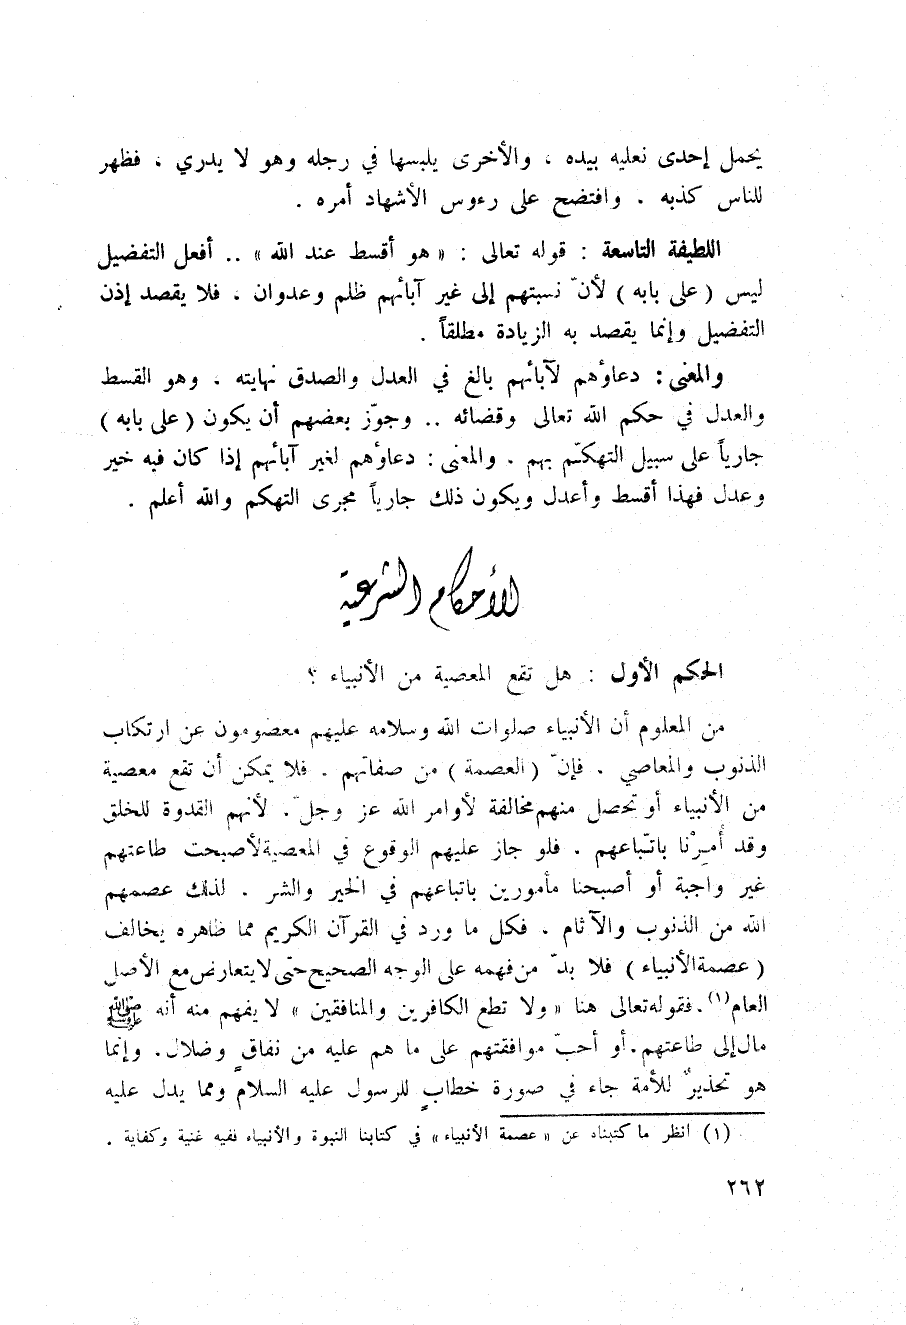 يحمل إحدى نعليه بيده ، والأخرى يلبسها في رجله وهو لا يدري ، فظهر
للناس كذبه . وافتضح على رءوس الأشهاد أمره .
اللطيفة التاسعة : قوله تعالى : « هو أقسط عند الله » .. أفعل التفضيل
ليس ( على بابه ) لأنّ نسبتهم إلى غير آبائهم ظلم وعدوان ، فلا يقصد إذن
التفضيل وإنما يقصد به الزيادة مطلقاً .
والمعنى : دعاؤهم لآبائهم بالغ في العدل والصدق نهايته ، وهو القسط
والعدل في حكم الله تعالى وقضائه .. وجوّز بعضهم أن يكون ( على بابه )
جارياً على سبيل التهكّم بهم . والمعنى : دعاؤهم لغير آبائهم إذا كان فيه خير
وعدل فهذا أقسط وأعدل ويكون ذلك جارياً مجرى التهكم والله أعلم .
الأحكام الشرعية
الحكم الأول : هل تقع المعصية من الأنبياء ؟
من المعلوم أن الأنبياء صلوات الله وسلامه عليهم معصومون عن ارتكاب
الذنوب والمعاصي . فإنّ ( العصمة ) من صفاتهم . فلا يمكن أن تقع معصية
من الأنبياء أو تحصل منهم مخالفة لأوامر الله عز وجلّ . لأنهم القدوة للخلق
وقد أُمِرْنا باتّباعهم . فلو جاز عليهم الوقوع في المعصية لأصبحت طاعتهم
غير واجبة أو أصبحنا مأمورين باتباعهم في الخير والشر . لذلك عصمهم
الله من الذنوب والآثام . فكل ما ورد في القرآن الكريم مما ظاهره يخالف
( عصمة الأنبياء ) فلا بدّ من فهمه على الوجه الصحيح حتى لا يتعارض مع الأصل
العام(١) . فقوله تعالى هنا « ولا تطع الكافرين والمنافقين » لا يفهم منه أنه ﷺ
مال إلى طاعتهم . أو أحبّ موافقتهم على ما هم عليه من نفاقٍ وضلال . وإنما
هو تحذيرٌ للأمة جاء في صورة خطابٍ للرسول عليه السلام ومما يدل عليه
(١) انظر ما كتبناه عن « عصمة الأنبياء » في كتابنا النبوة والأنبياء ففيه غنية وكفاية .
٢٦٢